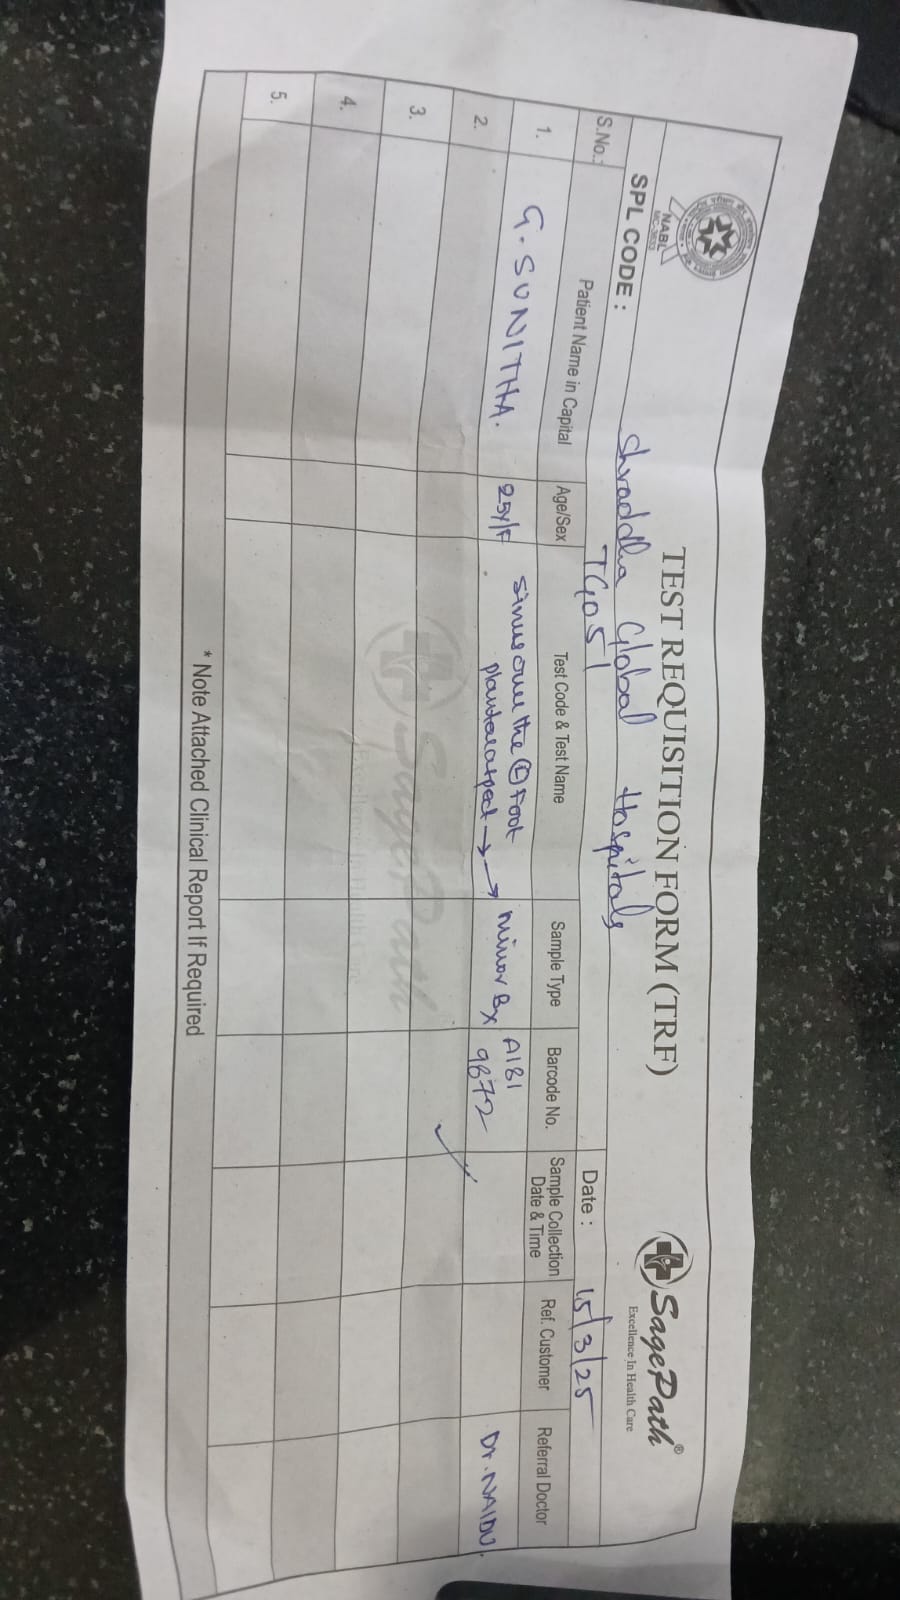 TEST REQUISITION FORM (TRF)
NABL
MC-3633
SagePath®
Excellence In Health Care
SPL CODE : Shraddha Global Hospitals
TG051
Date : 15/3/25
S.No.: Patient Name in Capital Age/Sex Test Code & Test Name Sample Type Barcode No. Sample Collection Date & Time Ref. Customer Referral Doctor
1. G. SUNITHA. 25Y/F Sinus over the (L) Foot plantar aspect → → minor Bx A181 9872 Dr. NAIDU.
2.
3.
4.
5.
SagePath
Excellence In Health Care
* Note Attached Clinical Report If Required